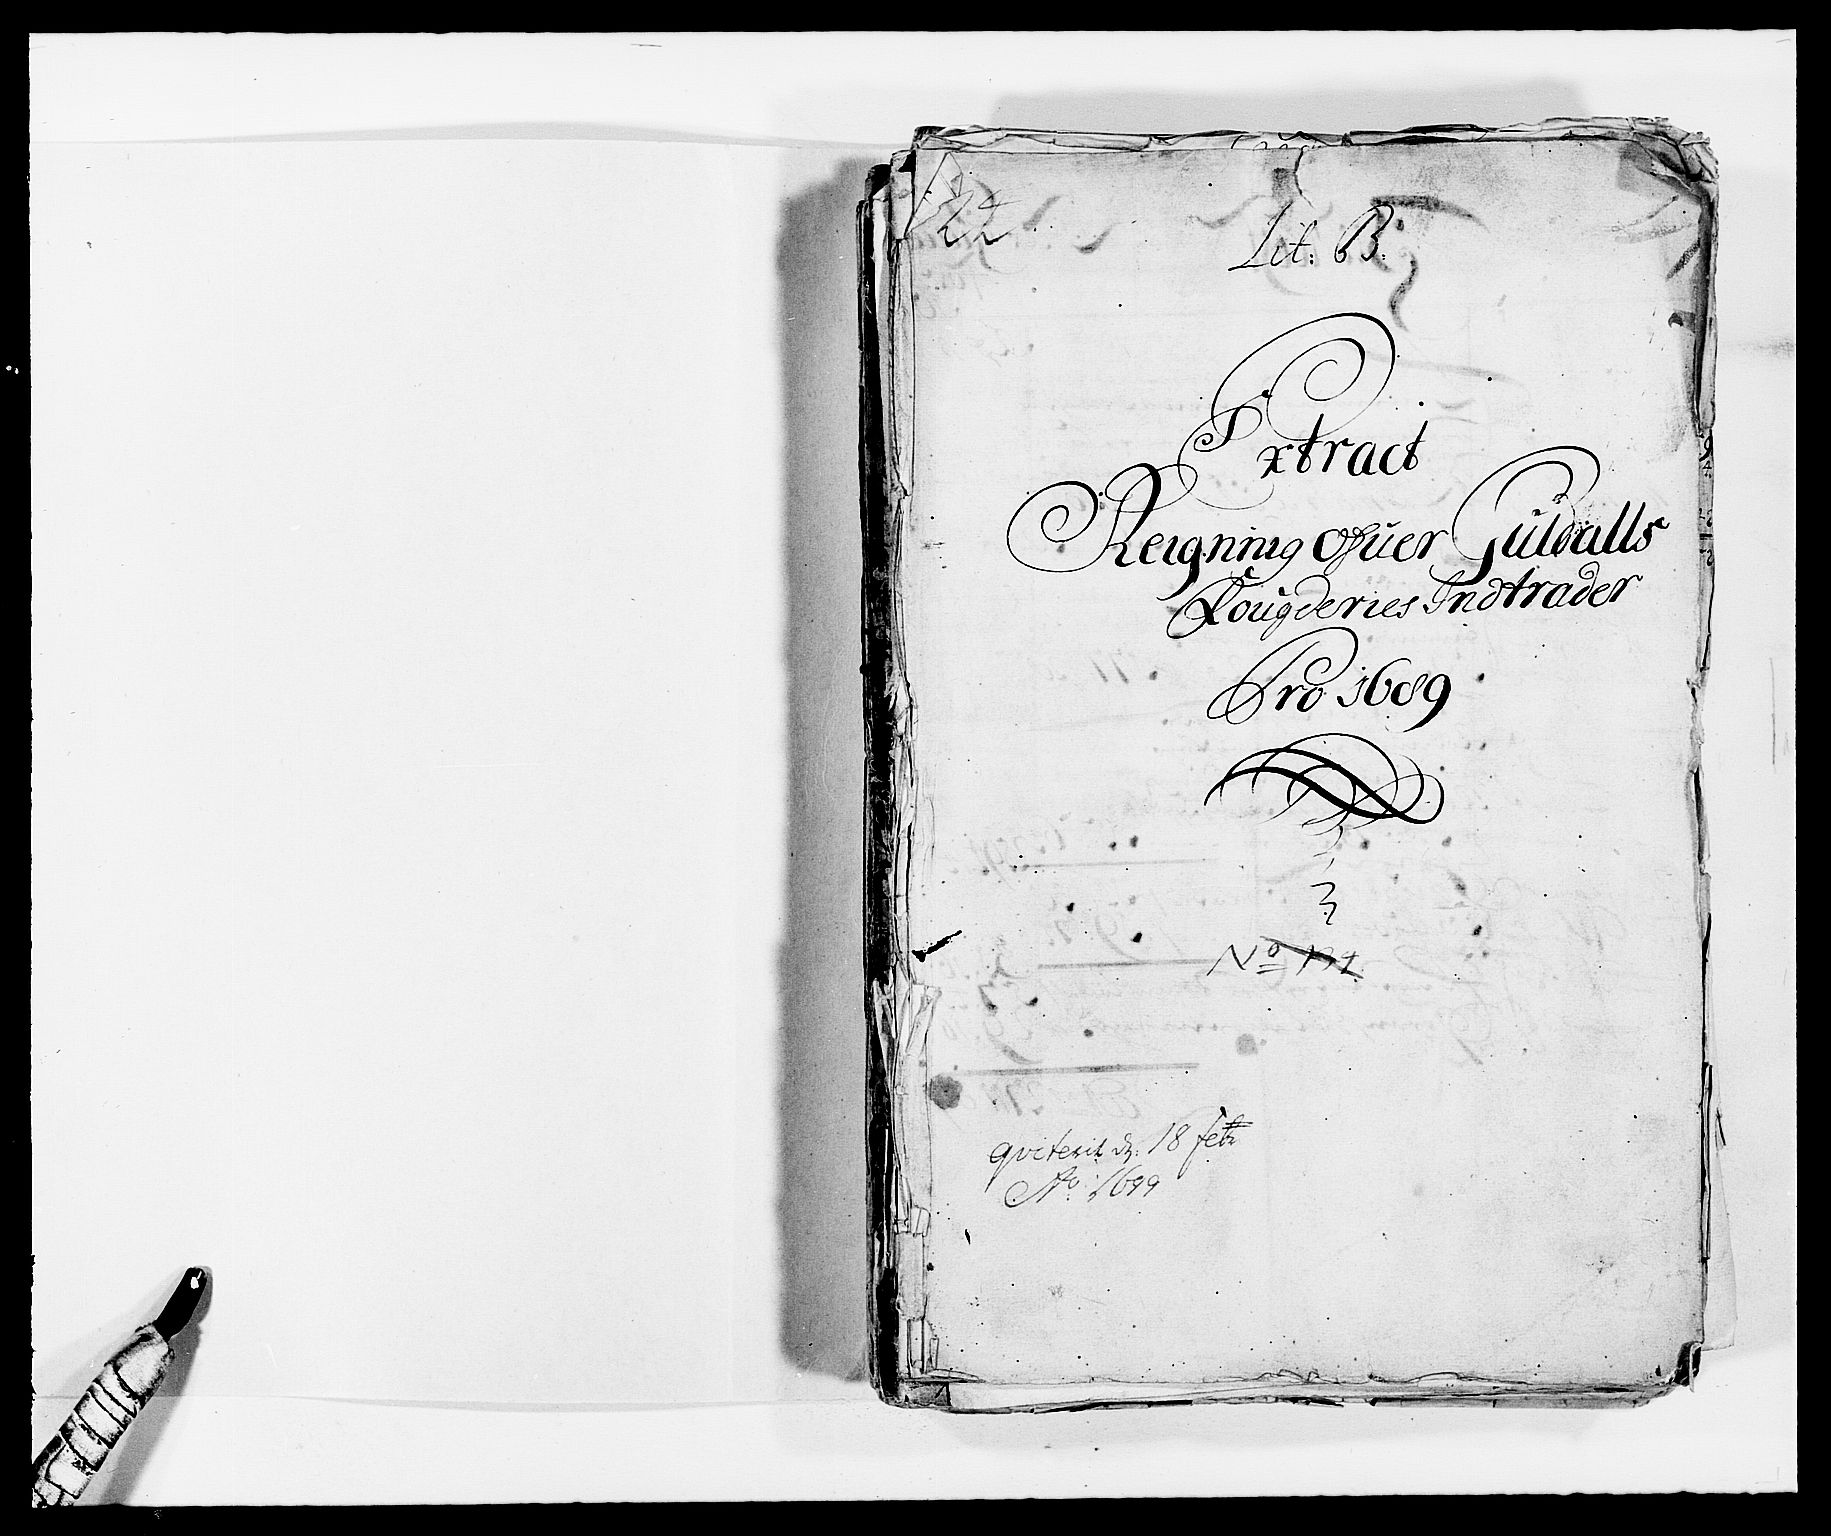 22
Lit: B.
Extract
Reigning ofuer Guldalls
Fougderies Indtrader
Pro 1689
3
No 131
qviterit d. 18 febr
Ao. 1699